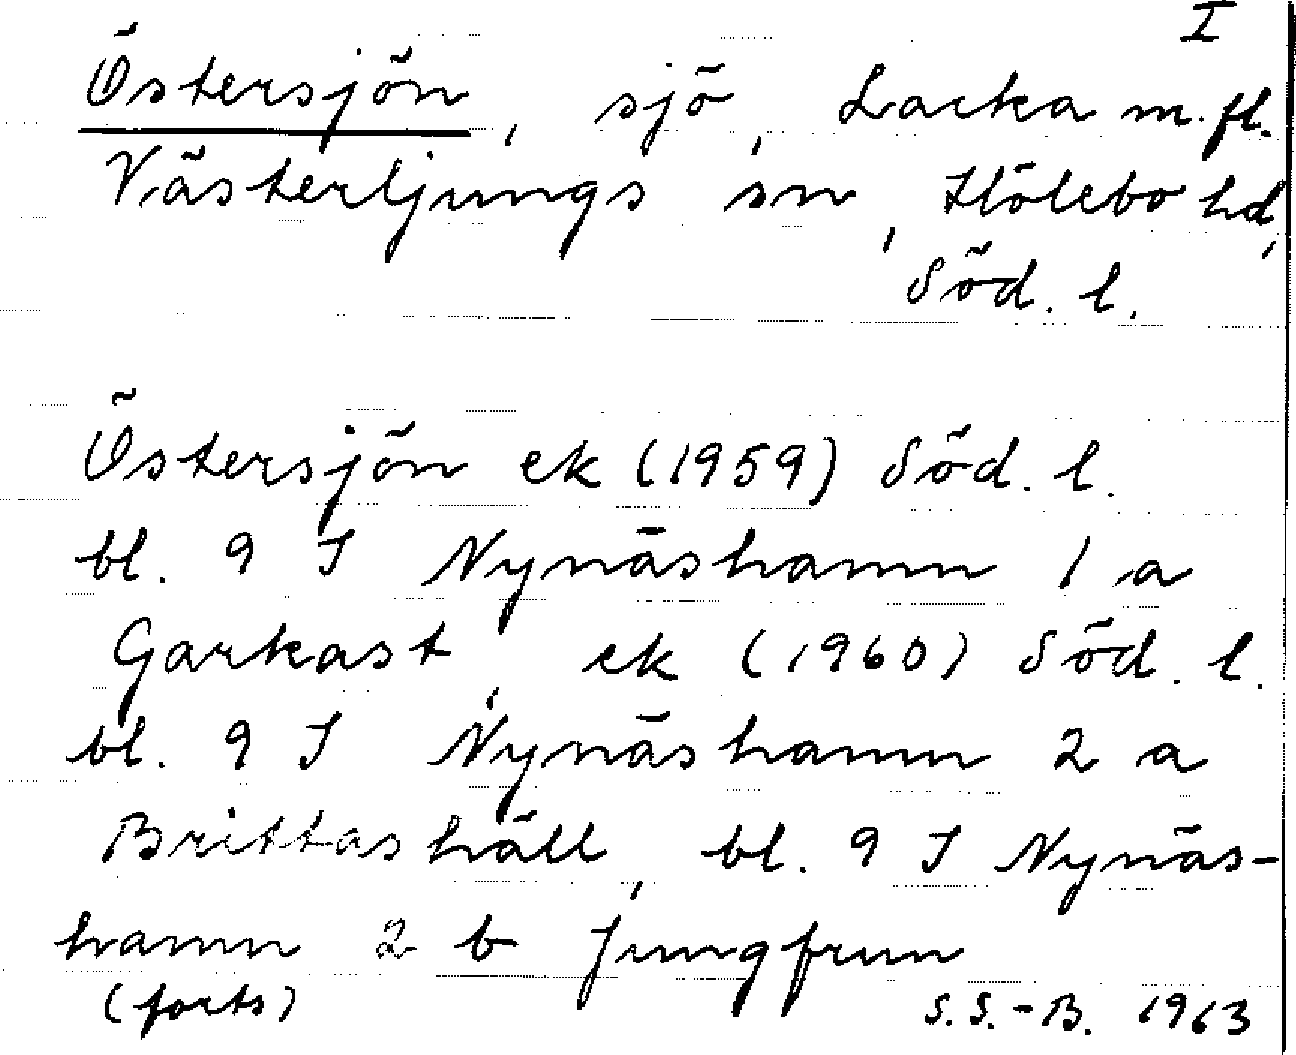 I
Östersjön, sjö, Lacka m.fl.
Västerljungs sn, Hölebo hd,
Söd. l.
Östersjön ek (1959) Söd. l.
bl. 9 I Nynäshamn 1 a
Garkast, ek (1960) Söd. l.
bl. 9 I Nynäshamn 2 a
Brittashäll, bl. 9 I Nynäs-
hamn 2 b Jungfrun
(forts) S.S.-B. 1963